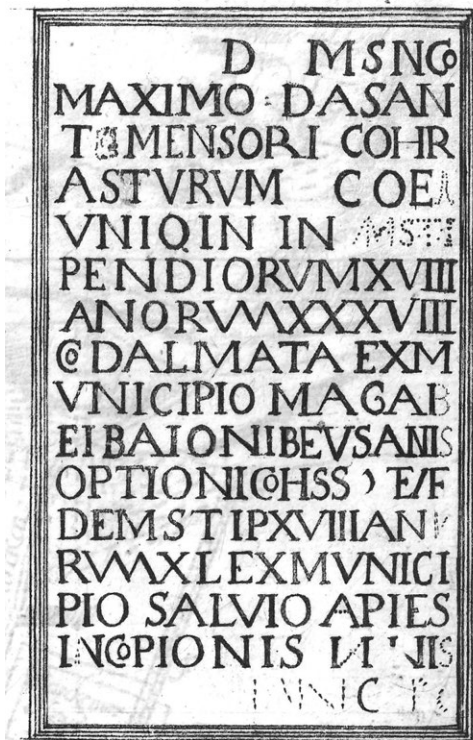 D MSNCO
MAXIMO DASAN
MENSORI COHR
ASTVRVM COE
VNIQIN IN
PENDIORVMXVIIII
ANORVMXXXVIIII
CO DALMATA EXM
VNICIPIO MAGAB
EIBAIONIBEVSANIS
OPTIONICOHSS
DEMSTIPXVIIIAN
RVMXLEXMVNICI
PIO SALVIO APIES
INCOPIONIS